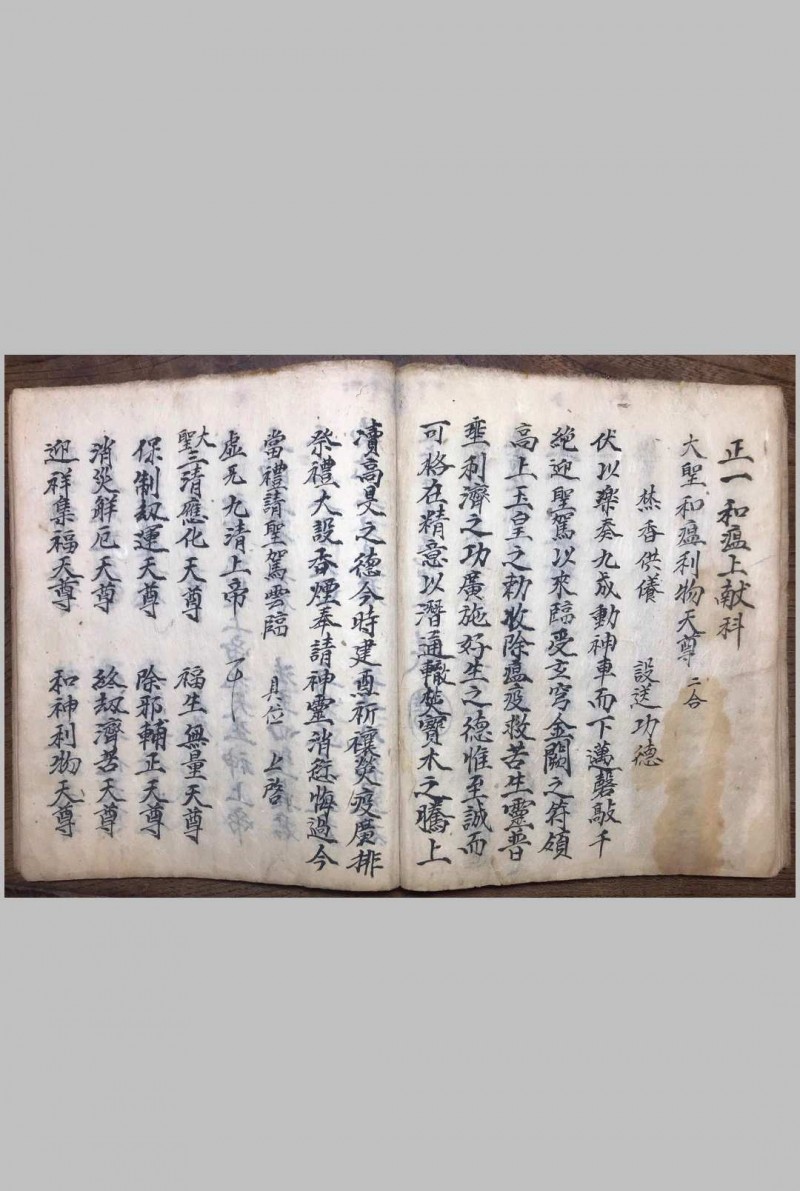 正一和瘟上献科
大聖和瘟利物天尊 二合
焚香供儀 設送功德
伏以樂奏九成動神車而下邁磬敲千
絶迎聖駕以來臨受玄穹金闕之符領
高上玉皇之勅收除瘟疫救苦生靈普
垂利濟之功廣施好生之德惟至誠而
可格在精意以潛通輙焚寶木之騰上
凟高旻之德今時建醮祈禳災疫廣排
祭禮大設香煙奉請神靈消愆悔過今
當禮請聖駕雲臨 具位 上啓
虛无九清上帝
大聖三清應化天尊 福生無量天尊
保制刼運天尊 除邪輔正天尊
消災解厄天尊 終刼濟苦天尊
迎祥集福天尊 和神利物天尊